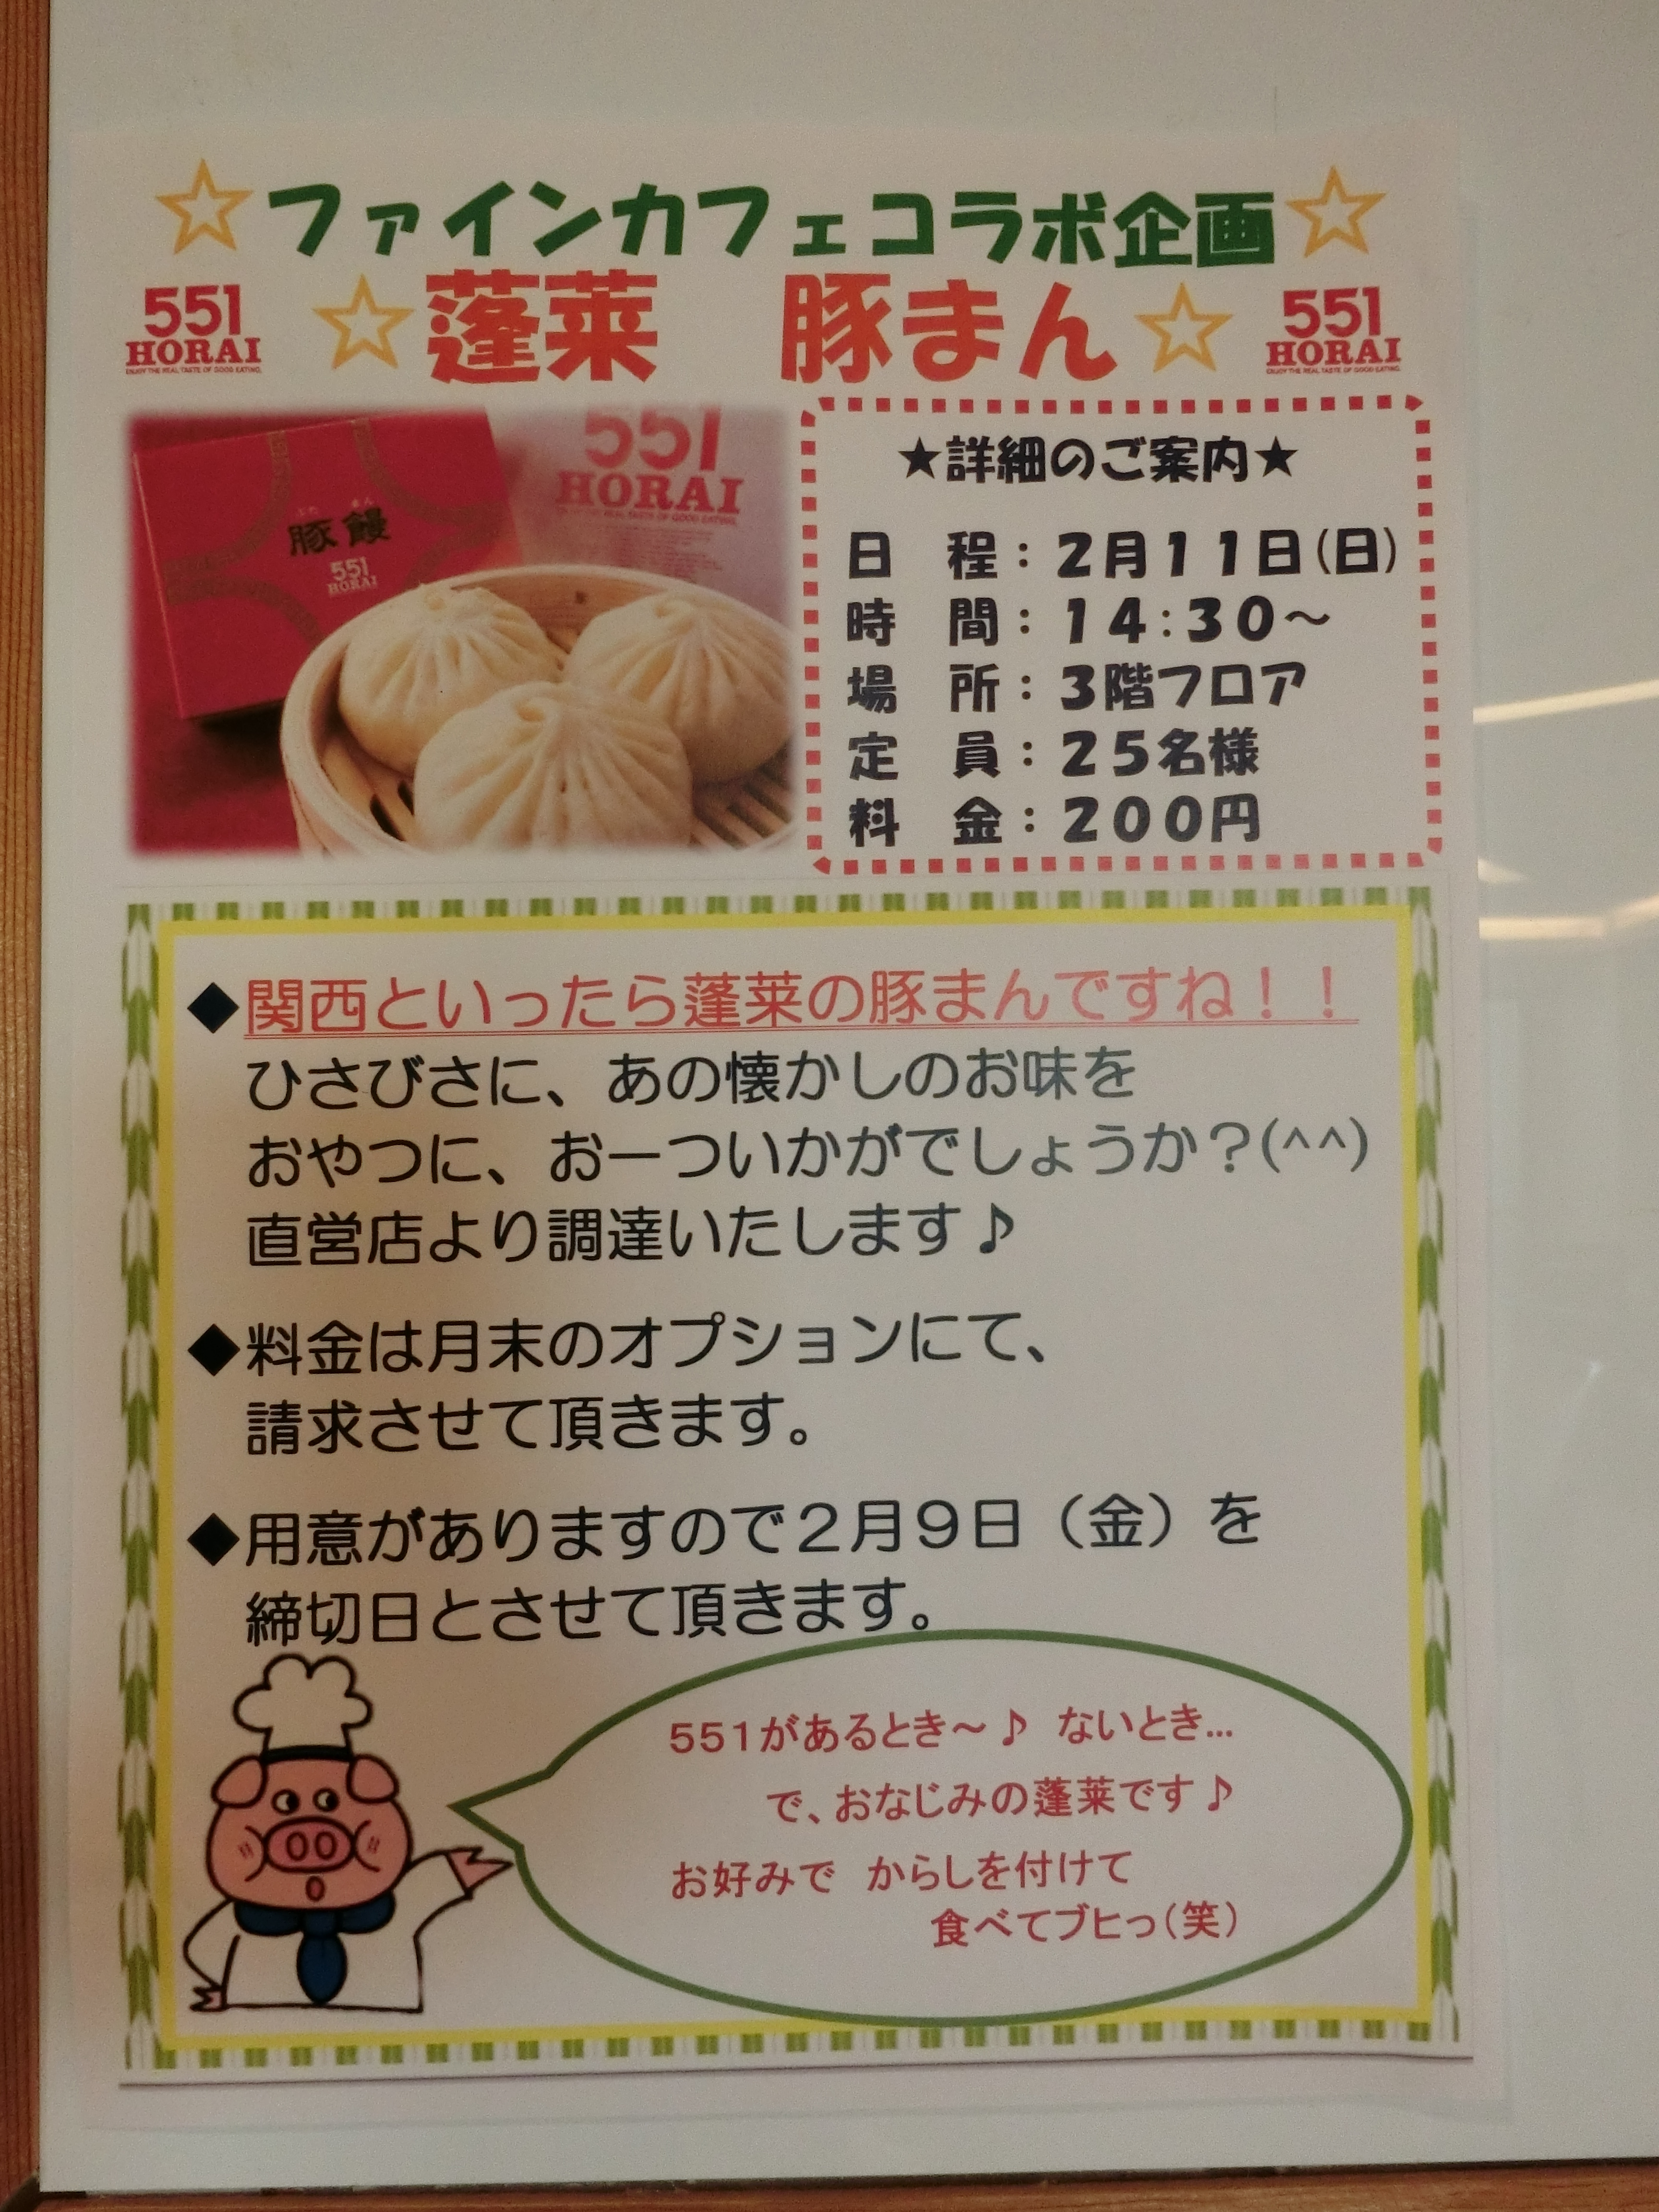 ☆ファインカフェコラボ企画☆
551
HORAI
ENJOY THE REAL TASTE OF GOOD EATING.
☆蓬莱　豚まん☆
551
HORAI
ENJOY THE REAL TASTE OF GOOD EATING.
ぶた まん
豚饅
551
HORAI
551
HORAI
ENJOY THE REAL TASTE OF GOOD EATING.
★詳細のご案内★
日　程：２月１１日(日)
時　間：１４:３０～
場　所：３階フロア
定　員：２５名様
料　金：２００円
◆関西といったら蓬莱の豚まんですね！！
ひさびさに、あの懐かしのお味を
おやつに、お一ついかがでしょうか？(^^)
直営店より調達いたします♪
◆料金は月末のオプションにて、
請求させて頂きます。
◆用意がありますので２月９日（金）を
締切日とさせて頂きます。
551があるとき～♪　ないとき…
で、おなじみの蓬莱です♪
お好みで　からしを付けて
食べてブヒっ(笑)